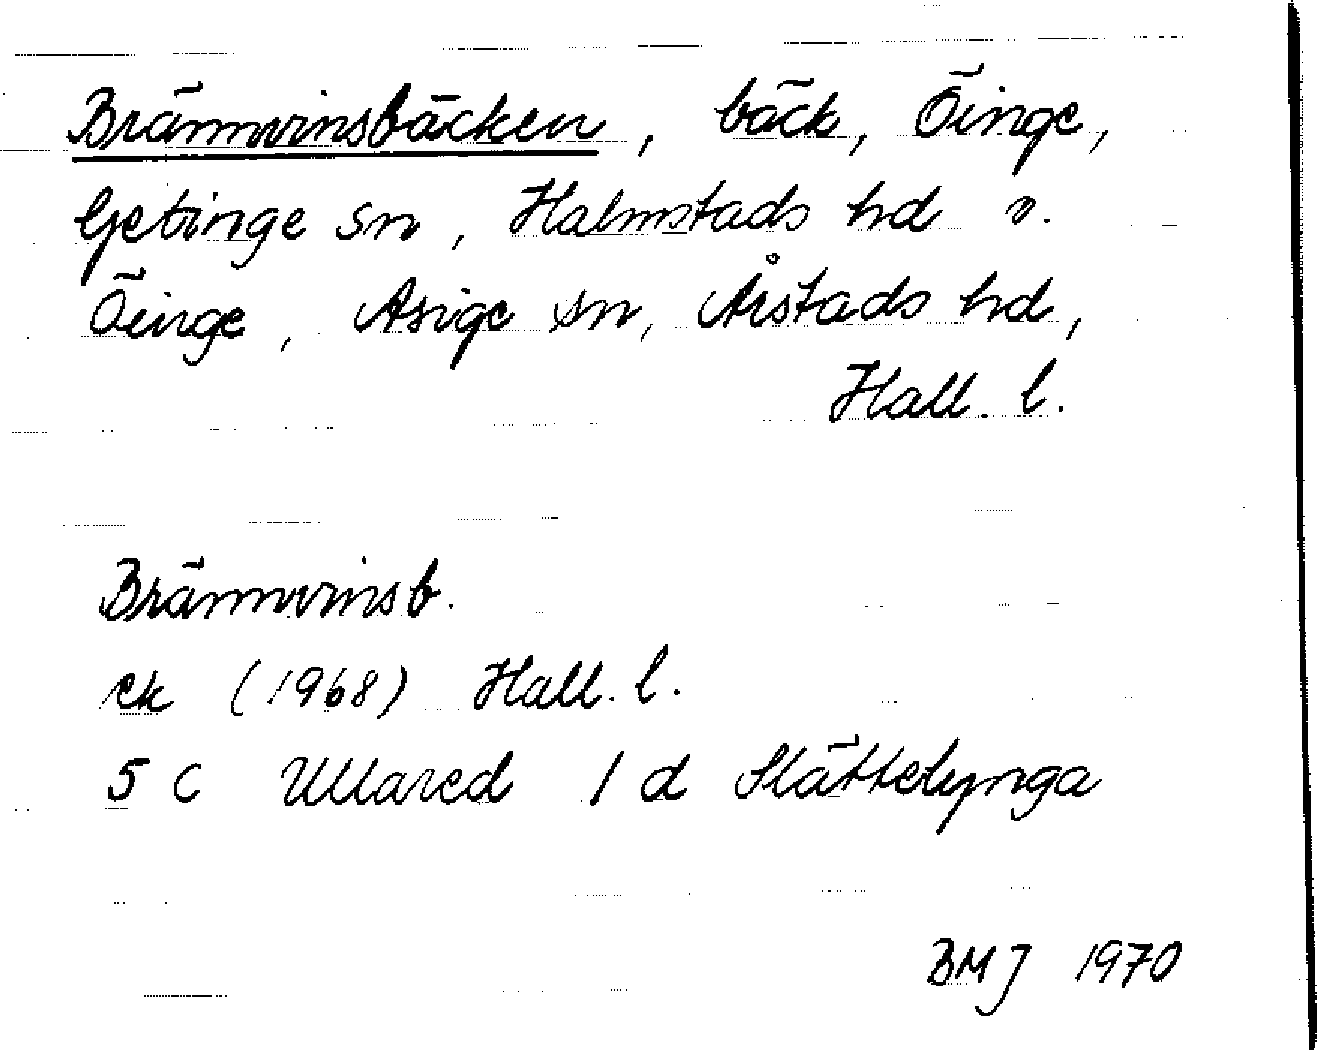 Brännvinsbäcken, bäck, Öinge,
Getinge sn, Halmstads hd o.
Öinge, Asige sn, Årstads hd,
Hall. l.
Brännvinsb.
ek (1968) Hall. l.
5 C Ullared 1 d Slättelynga
BMJ 1970